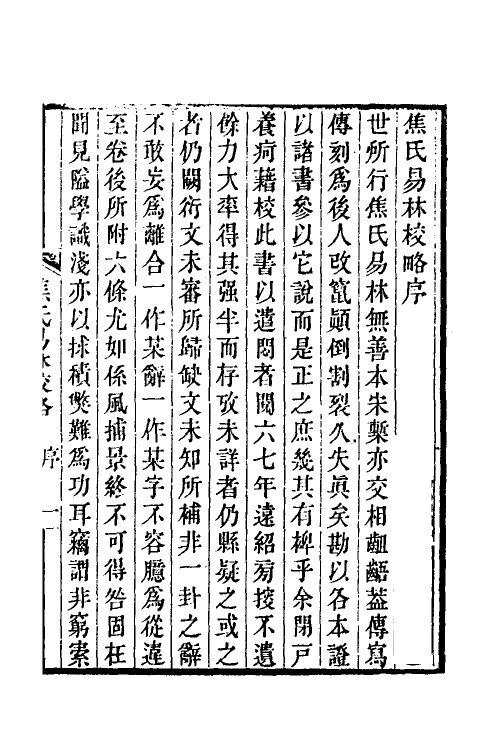 焦氏易林校略序
世所行焦氏易林無善本朱槧亦交相齟齬葢傳寫
傳刻爲後人改竄顚倒割裂久失眞矣勘以各本證
以諸書參以它說而是正之庶幾其有裨乎余閉戸
養疴藉校此書以遣悶者閱六七年遠紹菊捜不遺
餘力大率得其强半而存攷未詳者仍縣疑之或之
者仍闕衍文未審所歸缺文未知所補非一卦之辭
不敢妄爲離合一作某辭一作某字不容臆爲從違
至卷後所附六條尤如係風捕景終不可得咎固在
聞見隘學識淺亦以捄積獘難爲功耳竊謂非窮索
焦氏易林校略
序
一